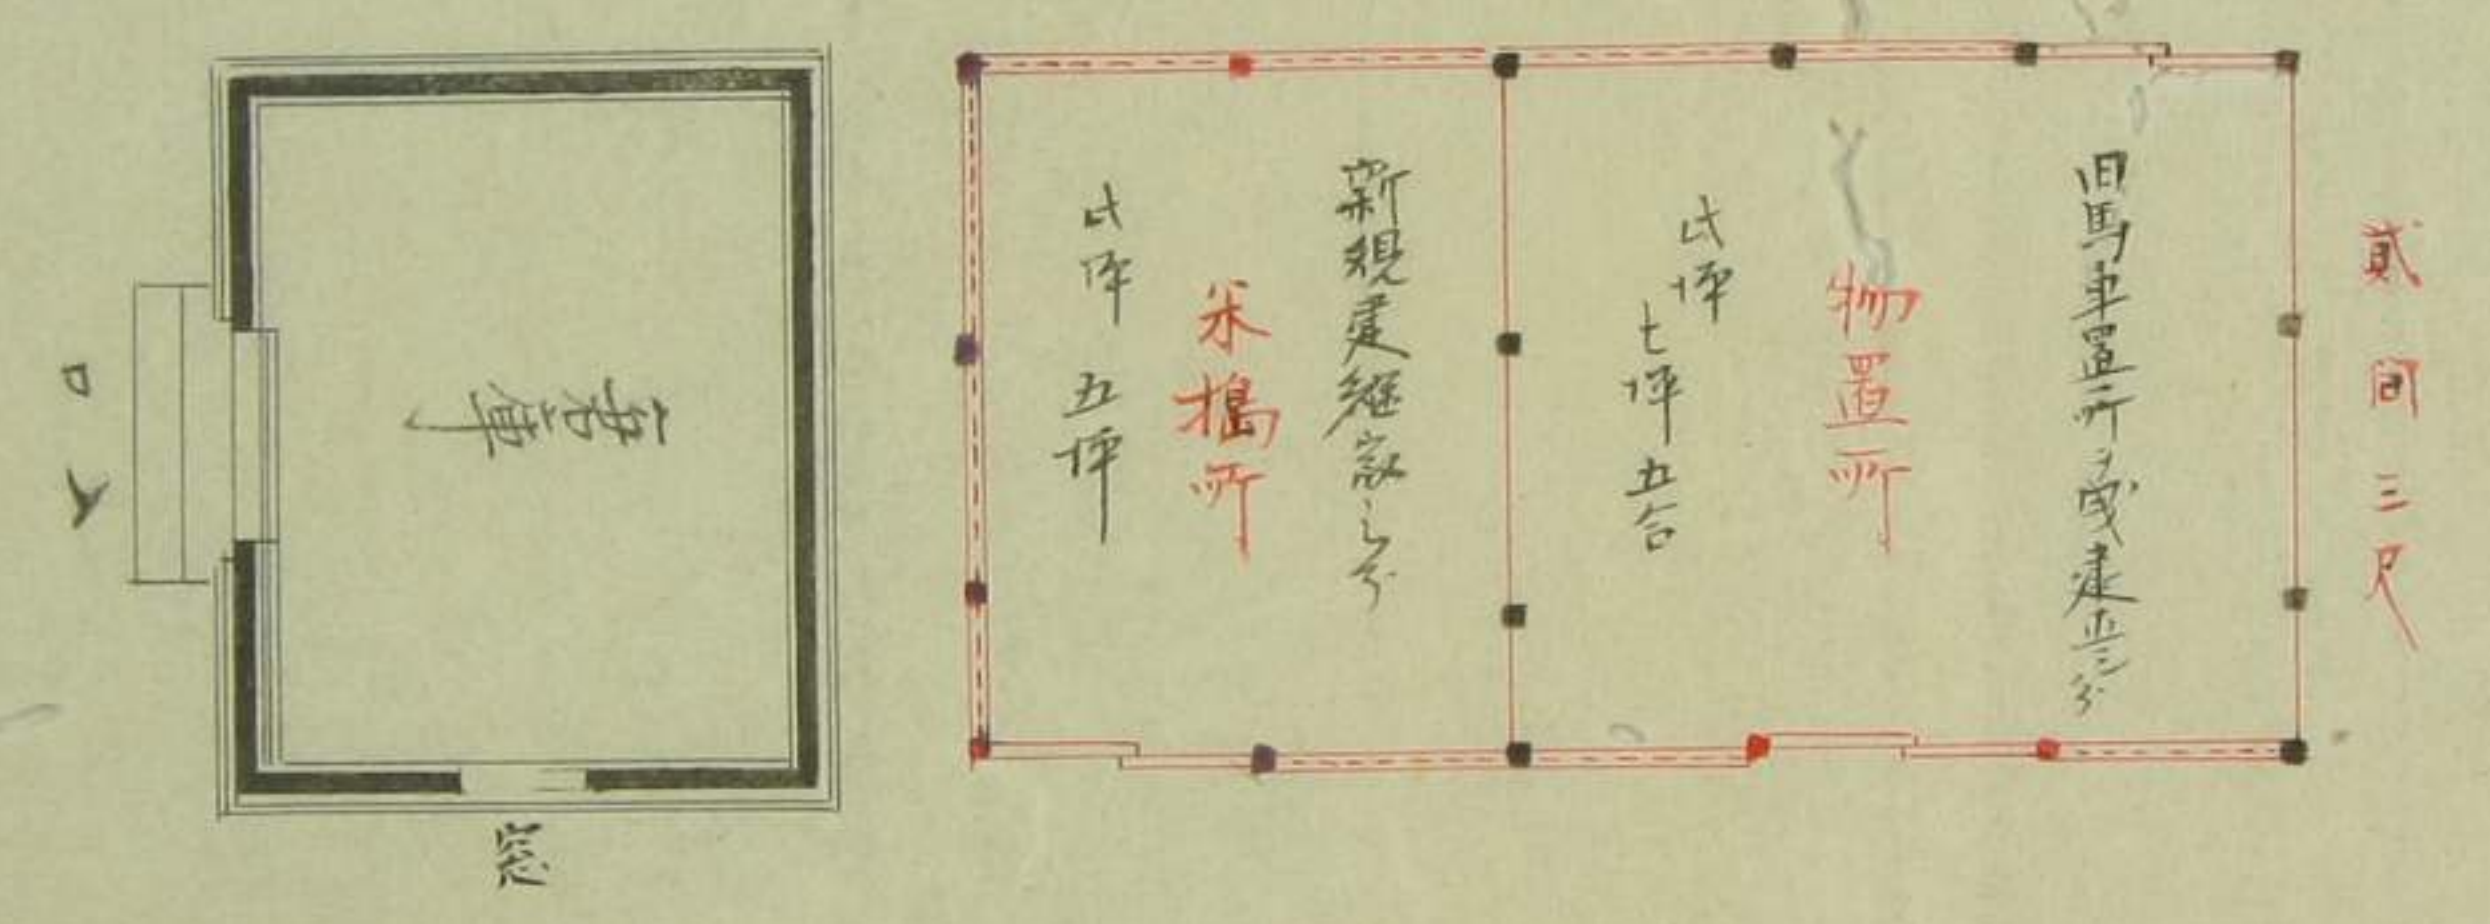 貳間三尺
旧馬車置所ヲ変建直シ分
物置所
此坪
七坪五合
新規建継家之分
米搗所
此坪 五坪
入口
窓